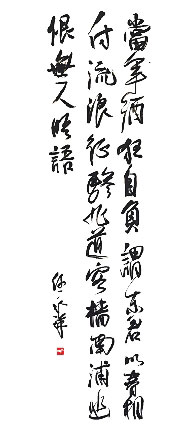 當年酒狂自負謂東君以春相
付流浪征驂北道客檣南浦幽
恨無人晤語